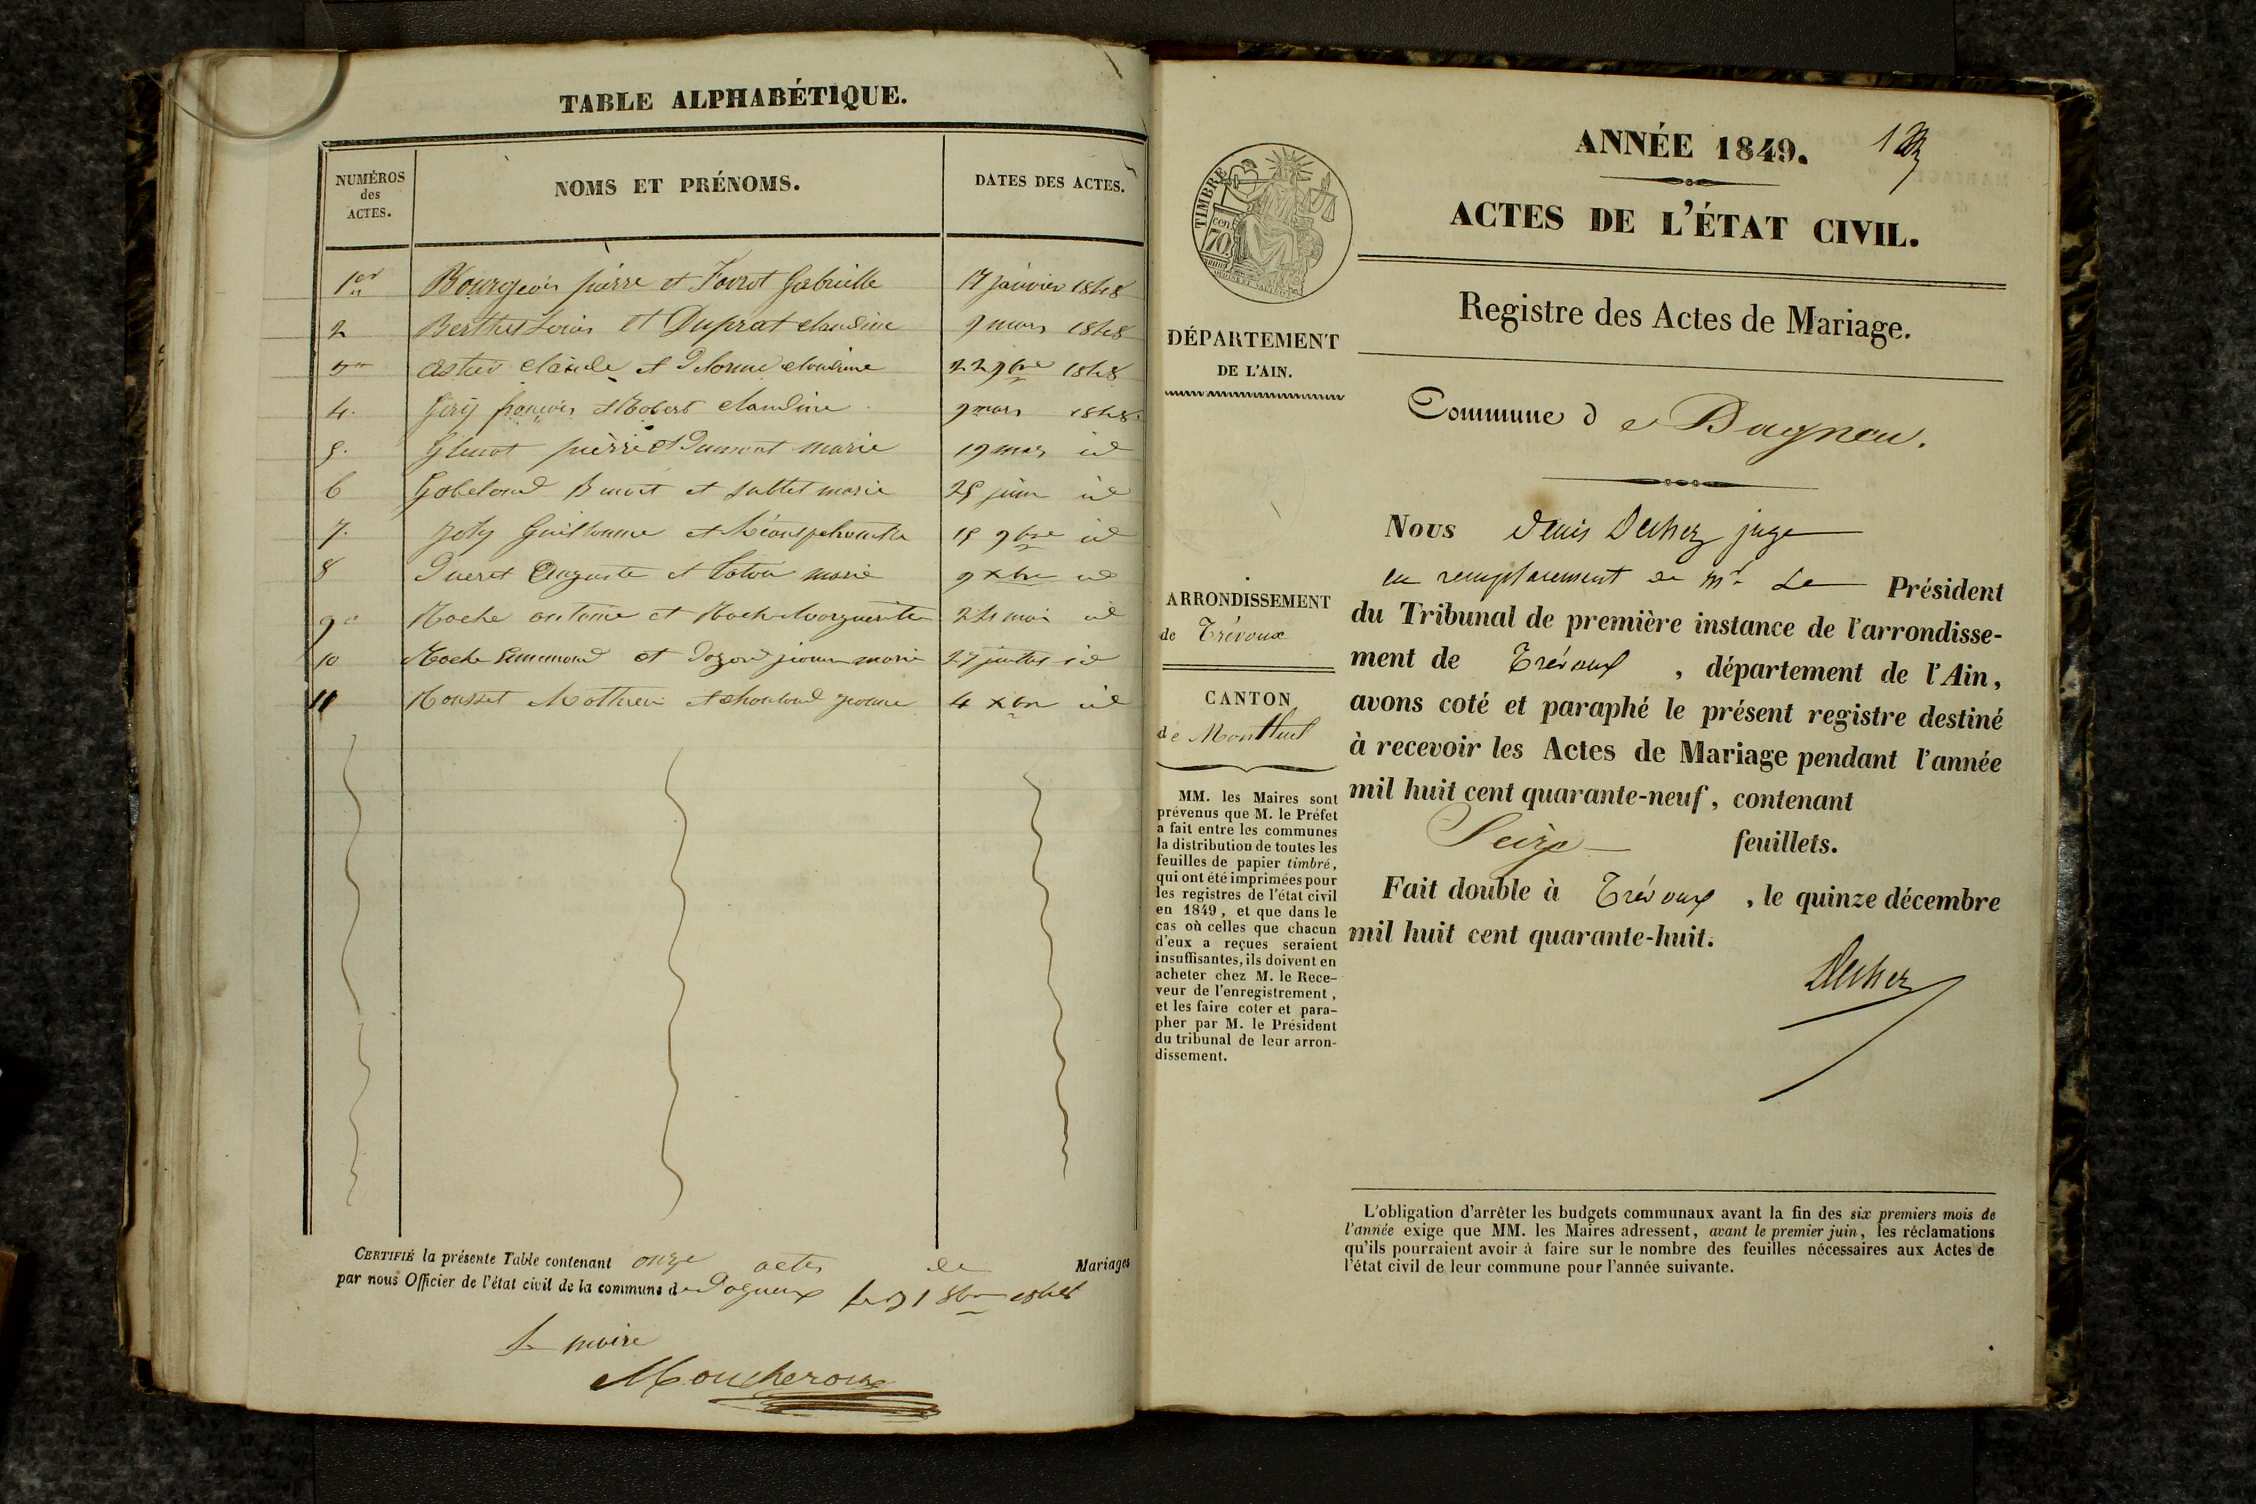 TABLE ALPHABÉTIQUE.
NUMÉROS
des
ACTES.
NOMS ET PRÉNOMS.
DATES DES ACTES.
1er Bourgeois pierre et Favrot Gabrielle 17 janvier 1848
2 Berthet Louis et Duprat claudine 9 mars 1848
3 astier claude et Delorme claudine 22 9bre 1848
4. françois et Robert claudine 9 mars 1848
5. pierre et Dumont marie 19 mars id
6 Benoit et Sublet marie 25 juin id
7. Joly Guillaume et 15 9bre id
8 Queret Auguste et marie 9 xbre id
9 Roche antoine et Roche Marguerite 24 mai id
10 Roche et jeanne marie 27 id
11 Rousset Mathieu et jeanne 4 xbre id
CERTIFIÉ la présente Table contenant onze actes de Mariages
par nous Officier de l'état civil de la commune de Dagneux le 31 1848
Le maire
Moucheroux
ANNÉE 1849. 1er
ACTES DE L'ÉTAT CIVIL.
Registre des Actes de Mariage.
TIMBRE
cent
70
DÉPARTEMENT
DE L'AIN.
ARRONDISSEMENT
de Trévoux
CANTON
de Montluel
MM. les Maires sont
prévenus que M. le Préfet
a fait entre les communes
la distribution de toutes les
feuilles de papier timbré,
qui ont été imprimées pour
les registres de l'état civil
en 1849, et que dans le
cas où celles que chacun
d'eux a reçues seraient
insuffisantes, ils doivent en
acheter chez M. le Rece-
veur de l'enregistrement,
et les faire coter et para-
pher par M. le Président
du tribunal de leur arron-
dissement.
Commune de Dagneu.
Nous Denis juge
en remplacement de Mr Le Président
du Tribunal de première instance de l'arrondisse-
ment de Trévoux, département de l'Ain,
avons coté et paraphé le présent registre destiné
à recevoir les Actes de Mariage pendant l'année
mil huit cent quarante-neuf, contenant
Seize feuillets.
Fait double à Trévoux, le quinze décembre
mil huit cent quarante-huit.
L'obligation d'arrêter les budgets communaux avant la fin des six premiers mois de
l'année exige que MM. les Maires adressent, avant le premier juin, les réclamations
qu'ils pourraient avoir à faire sur le nombre des feuilles nécessaires aux Actes de
l'état civil de leur commune pour l'année suivante.